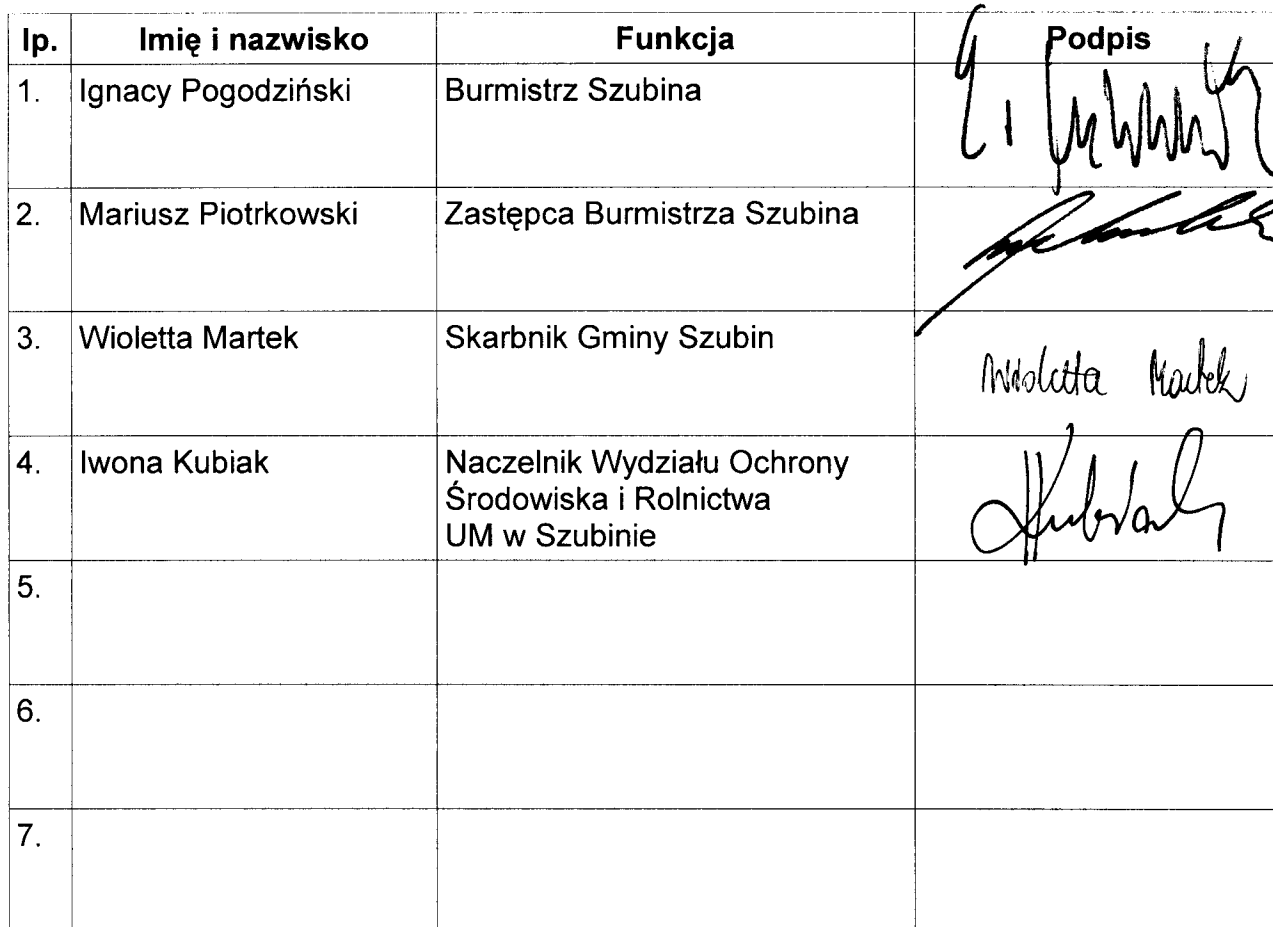 lp. Imię i nazwisko Funkcja Podpis
1. Ignacy Pogodziński Burmistrz Szubina
2. Mariusz Piotrkowski Zastępca Burmistrza Szubina
3. Wioletta Martek Skarbnik Gminy Szubin
Wioletta Martek
4. Iwona Kubiak Naczelnik Wydziału Ochrony
Środowiska i Rolnictwa
UM w Szubinie
IKubiak
5.
6.
7.